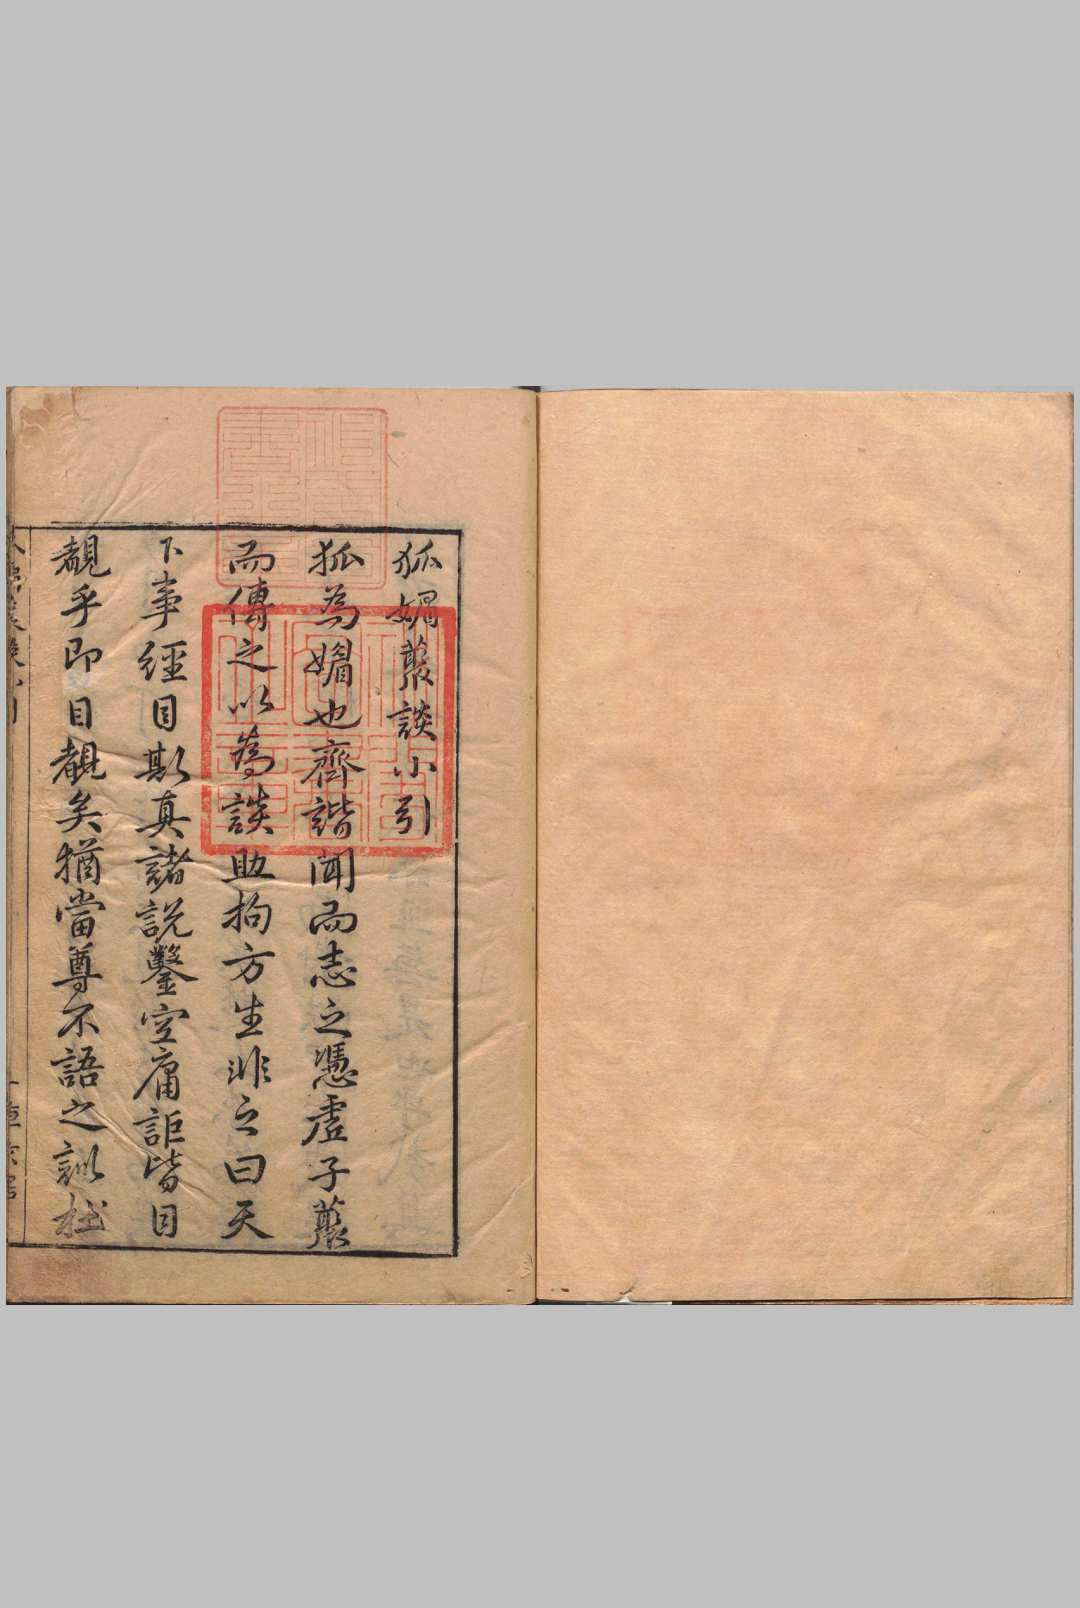 狐媚藂談小引
狐為媚也齊諧聞而志之憑虛子藂
而傳之以為談助拘方生非之曰天
下事經目斯真諸說鑿空庸詎皆目
覩乎即目覩矣猶當尊不語之訓柱